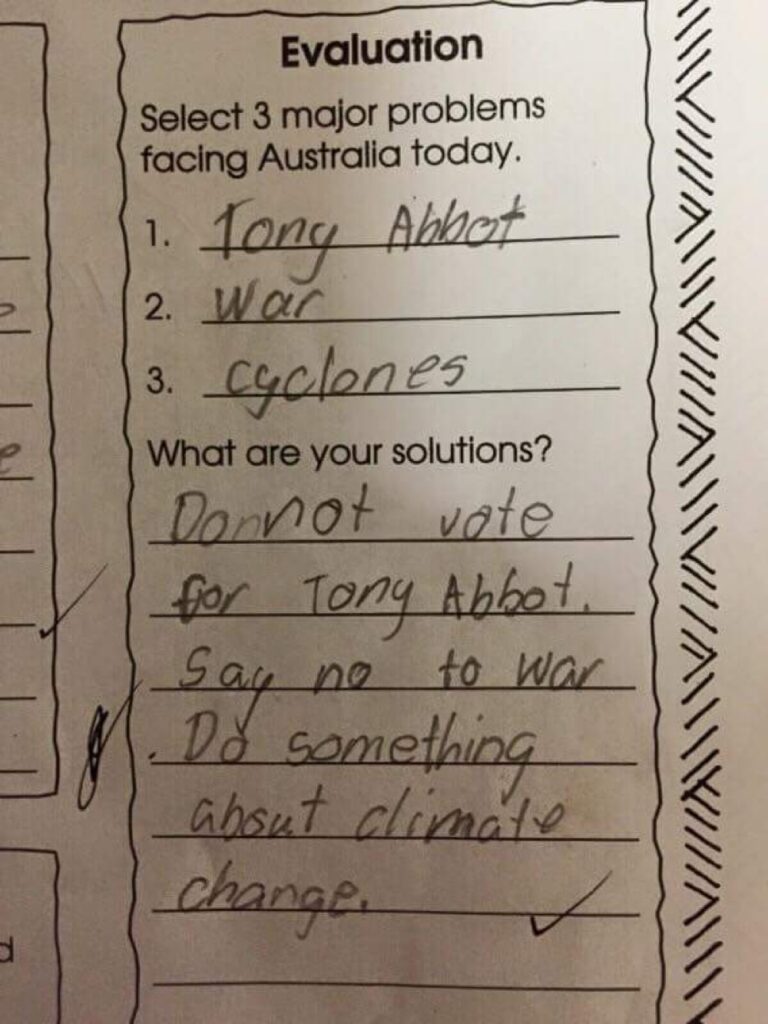 Evaluation
Select 3 major problems
facing Australia today.
1. Tony Abbot
2. War
3. cyclones
What are your solutions?
Donnot vote
for Tony Abbot.
Say no to war
. Do something
about climate
change.